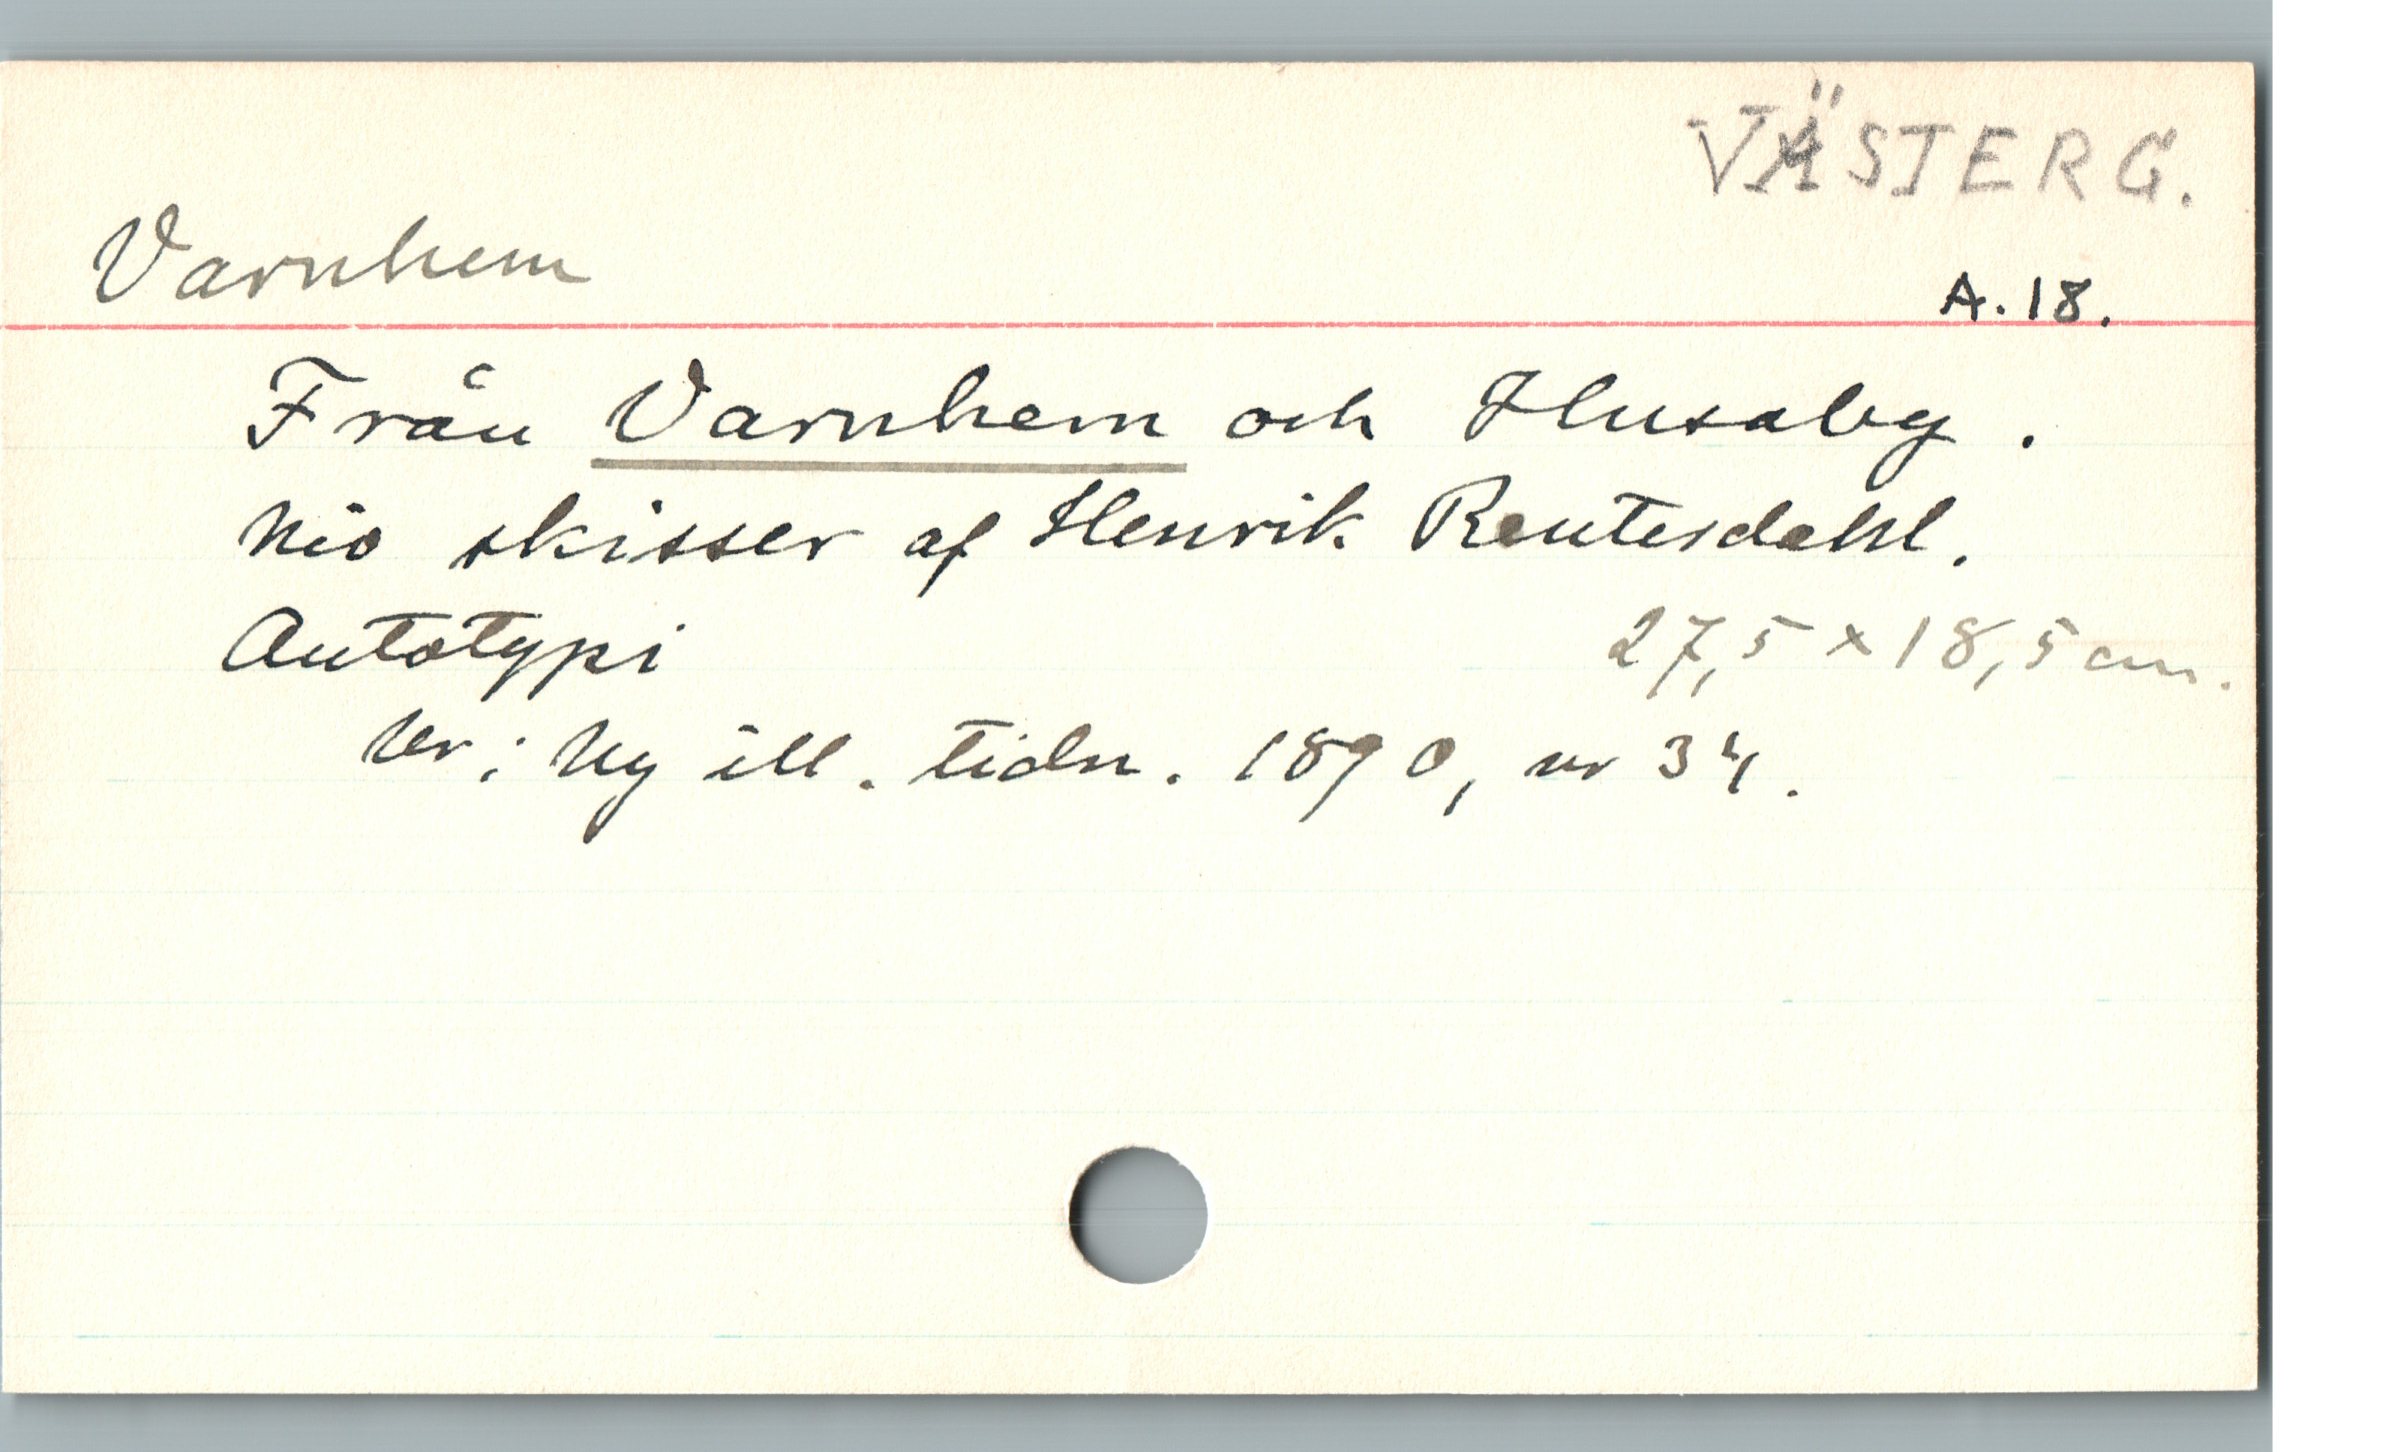 VÄSTERG.
Varnhem
A.18.
Från Varnhem och Husaby.
Nio skisser af Henrik Reutersdahl.
Autotypi 27,5 x 18,5 cm.
Ur: Ny ill. tidn. 1890, nr 34.